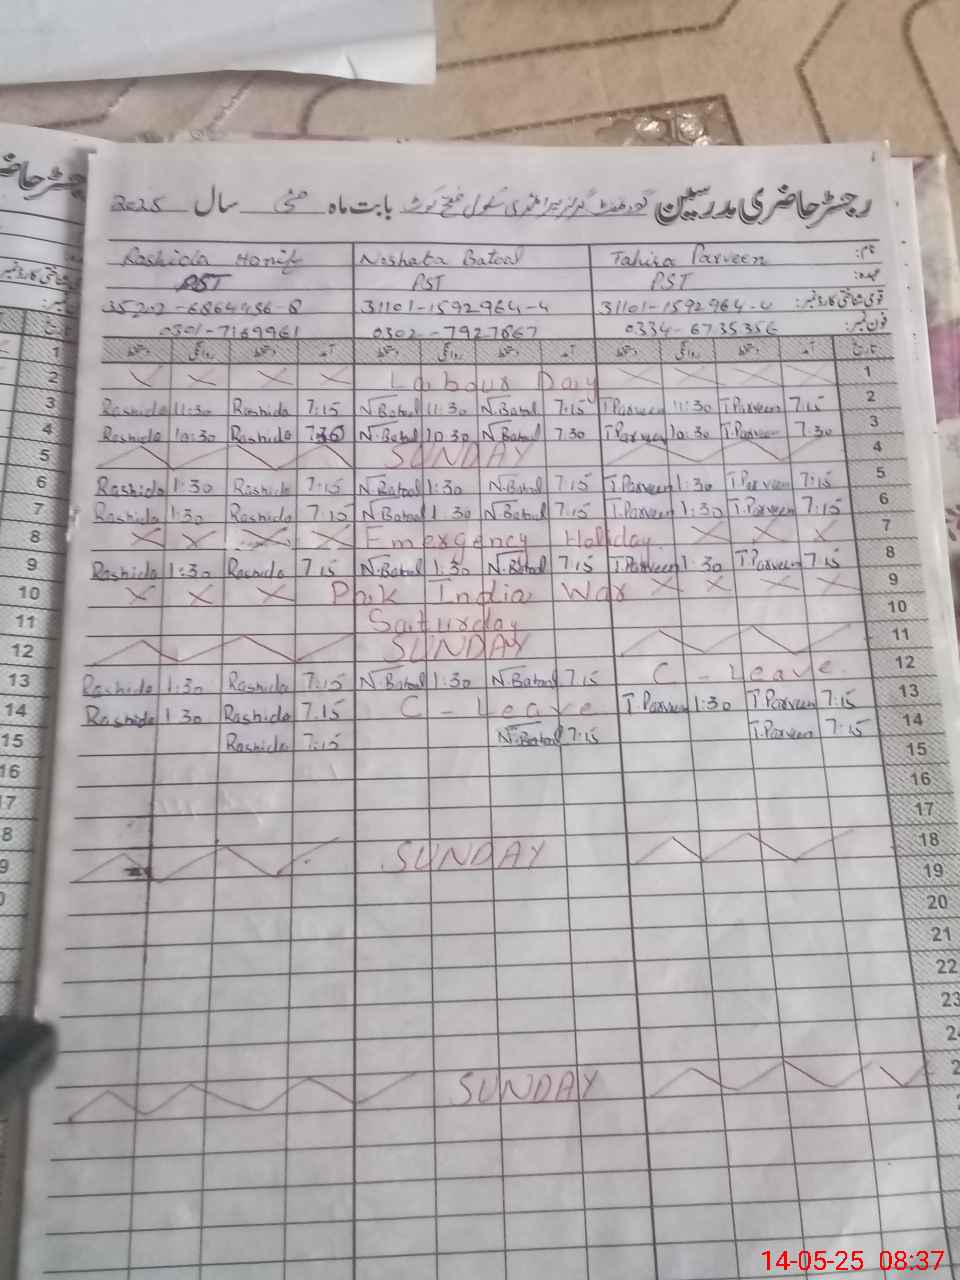 رجسٹر حاضری مدرسین گورنمنٹ گرلز پرائمری سکول فتح کوٹ بابت ماہ مئی سال 2025
نام: Tahira Parveen Noshata Batool Rashida Hanif
عہدہ: PST PST PST
قومی شناختی کارڈ نمبر: 31101-1592964-4 31101-1592964-4
فون نمبر: 0334-6735356 0302-7927667 0301-7169961
تاریخ آمد دستخط روانگی دستخط آمد دستخط روانگی دستخط آمد دستخط روانگی دستخط
X X X X Labour Day X X X X 1
Rashida 11:30 Rashida 7:15 N.Batool 11:30 N.Batool 7:15 T.Parveen 11:30 T.Parveen 7:15 2
Rashida 10:30 Rashida 7:30 N.Batool 10 30 N.Batool 7 30 T.Parveen 10:30 T.Parveen 7:30 3
SUNDAY 4
Rashida 1:30 Rashida 7:15 N.Batool 1:30 N.Batool 7 15 T.Parveen 1:30 T.Parveen 7:15 5
Rashida 1:30 Rashida 7:15 N.Batool 1 30 N.Batool 7:15 T.Parveen 1:30 T.Parveen 7:15 6
X X X X Emergency Holiday X X X 7
Rashida 1:30 Rashida 7 15 N.Batool 1:30 N.Batool 7 15 T.Parveen 1:30 T.Parveen 7:15 8
X X X Pak India War X X X X 9
Saturday 10
SUNDAY 11
Rashida 1:30 Rashida 7:15 N.Batool 1:30 N.Batool 7:15 C - Leave 12
Rashida 1 30 Rashida 7.15 C - Leave T.Parveen 1:30 T.Parveen 7:15 13
Rashida 7:15 N.Batool 7:15 T.Parveen 7:15 14
15
16
17
SUNDAY 18
19
20
21
22
23
SUNDAY
14-05-25 08:37